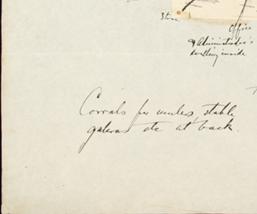 Store
Office
& Administrator's
dwelling inside
Corrals for mules, stable
galeras etc at back